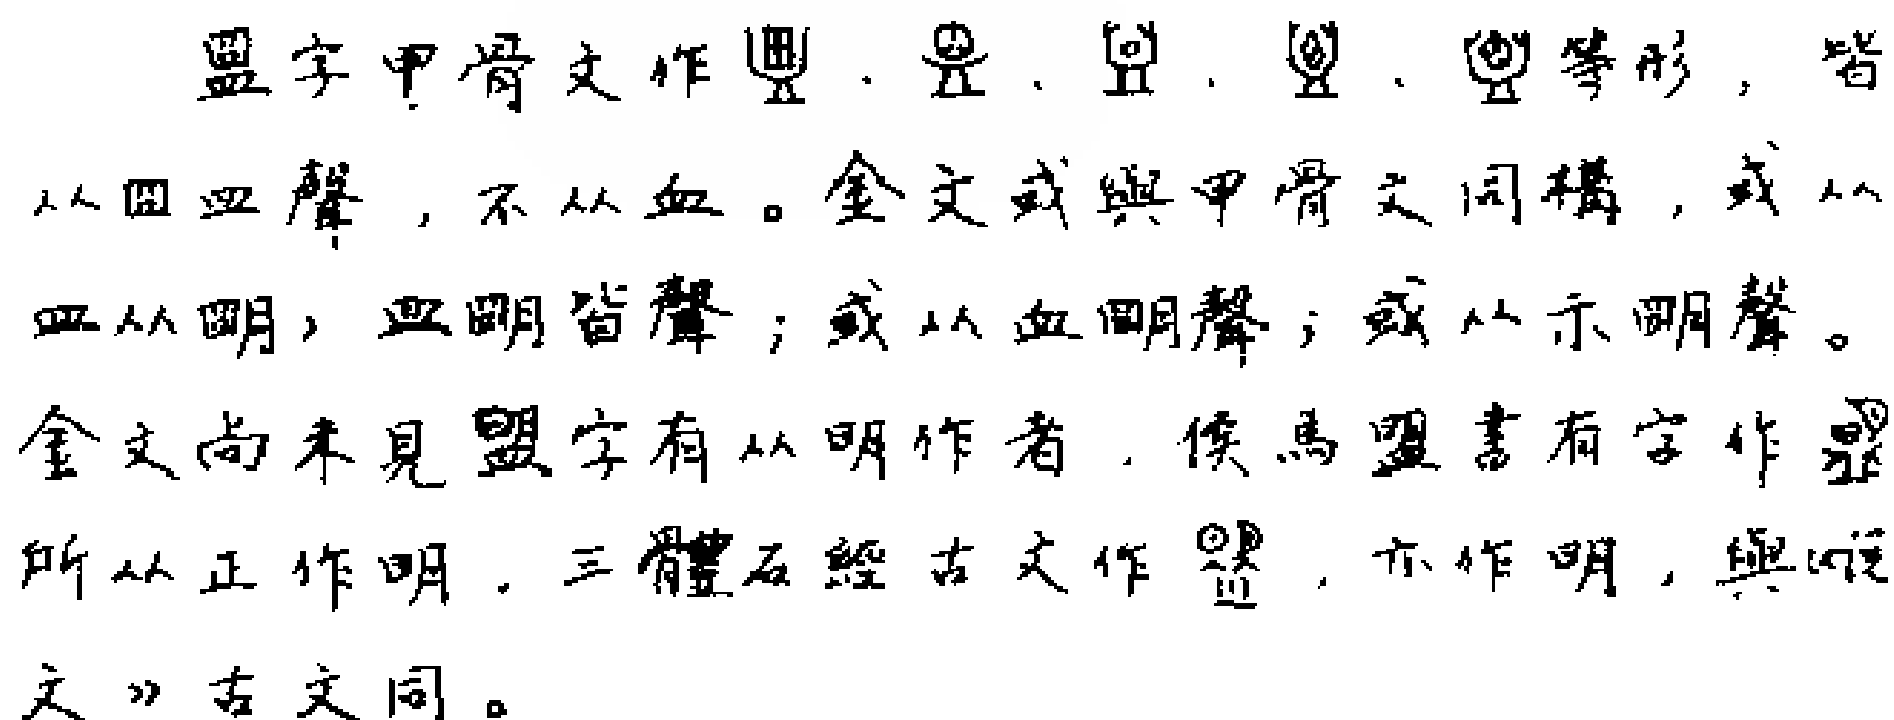 盟字甲骨文作、、、、等形，皆
从囧皿聲，不从血。金文或與甲骨文同構，或从
皿从朙，皿朙皆聲；或从血朙聲；或从示朙聲。
金文尚未見盟字有从明作者，侯馬盟書有字作
所从正作明，三體石經古文作，亦作明，與《說
文》古文同。